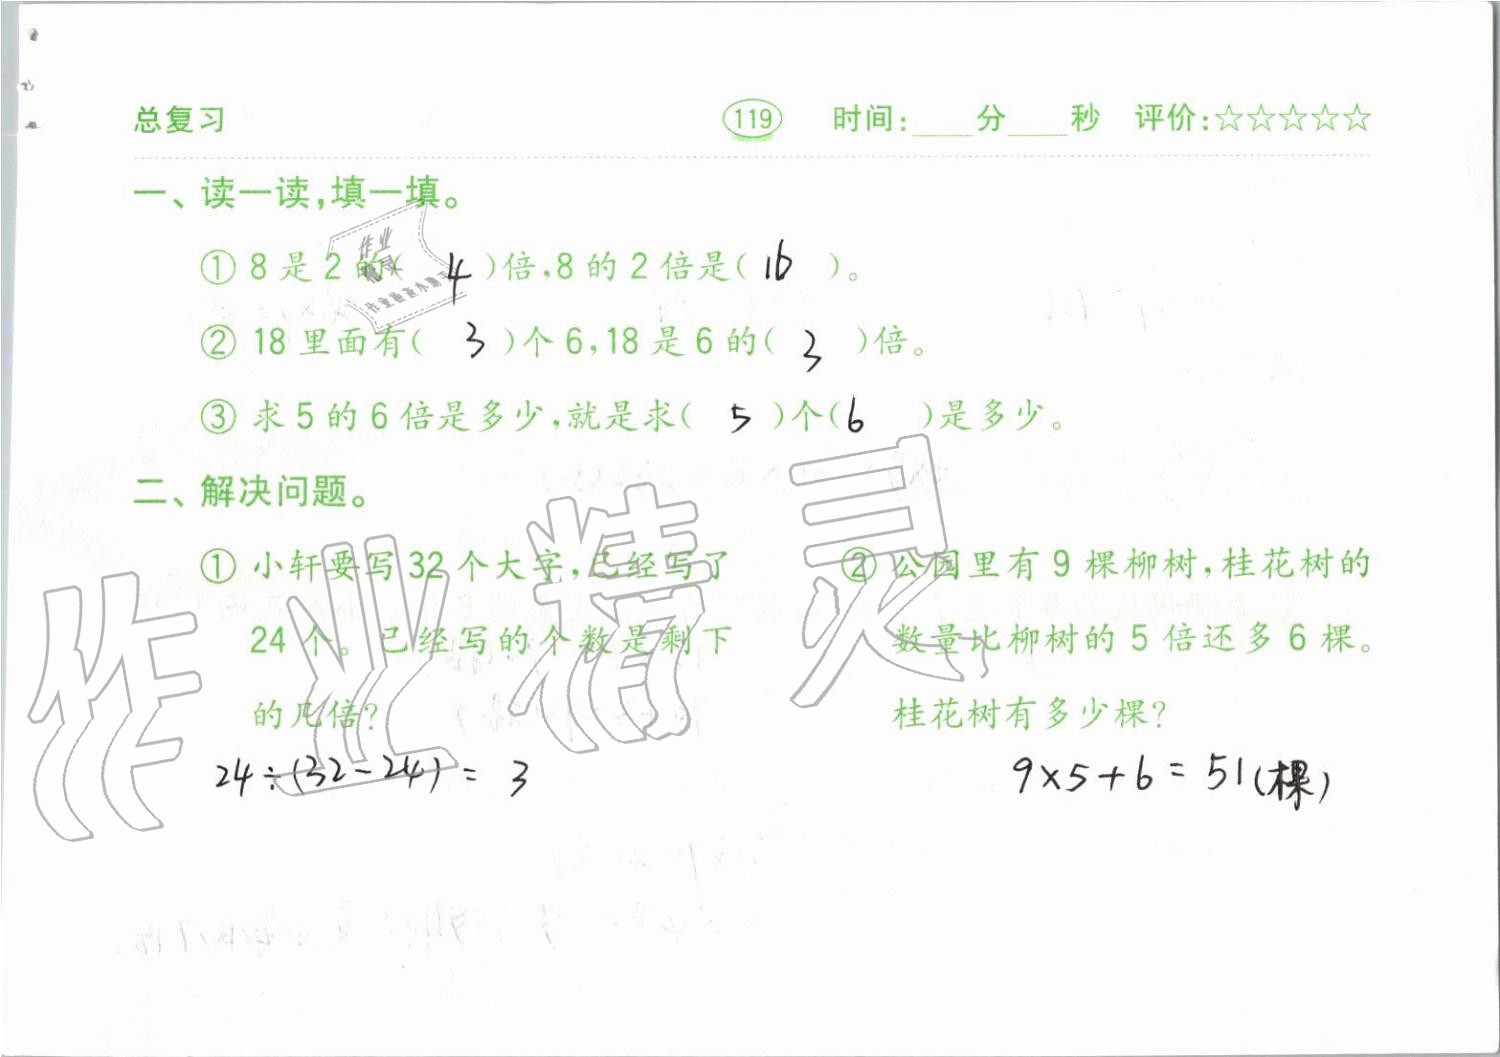 总复习 119 时间:____分____秒 评价:☆☆☆☆☆
一、读一读,填一填。
① 8是2的( 4 )倍,8的2倍是( 16 )。
② 18里面有( 3 )个6,18是6的( 3 )倍。
③ 求5的6倍是多少,就是求( 5 )个( 6 )是多少。
二、解决问题。
① 小轩要写32个大字,已经写了
24个。已经写的个数是剩下
的几倍?
24÷(32-24)= 3
② 公园里有9棵柳树,桂花树的
数量比柳树的5倍还多6棵。
桂花树有多少棵?
9×5+6=51(棵)
作业精灵